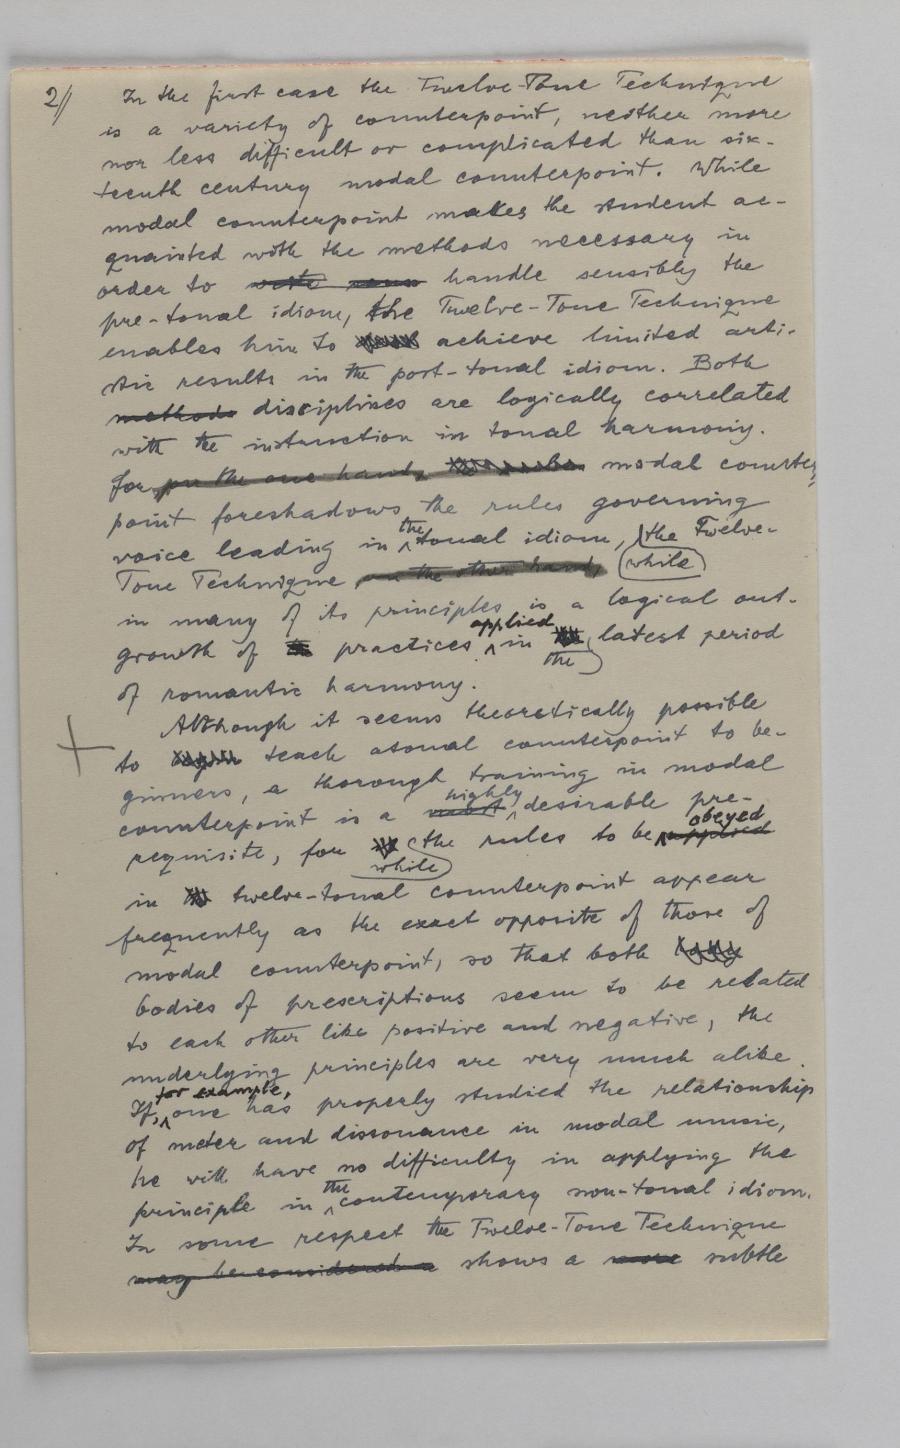 2//
In the first case the Twelve-Tone Technique
is a variety of counterpoint, neither more
nor less difficult or complicated than six-
teenth century modal counterpoint. While
modal counterpoint makes the student ac-
quainted with the methods necessary in
order to handle sensibly the
pre-tonal idiom, the Twelve-Tone Technique
enables him to achieve limited arti-
stic results in the post-tonal idiom. Both
methods disciplines are logically correlated
with the instruction in tonal harmony.
For on the one hand, modal counter-
point foreshadows the rules governing
voice leading in the tonal idiom, while the Twelve-
Tone Technique on the other hand,
in many of its principles is a logical out-
growth of practices applied in the latest period
of romantic harmony.
Although it seems theoretically possible
to teach atonal counterpoint to be-
ginners, a thorough training in modal
counterpoint is a most highly desirable pre-
requisite, for while the rules to be applied obeyed
in twelve-tonal counterpoint appear
frequently as the exact opposite of those of
modal counterpoint, so that both
bodies of prescriptions seem to be related
to each other like positive and negative, the
underlying principles are very much alike.
If, for example, one has properly studied the relationship
of meter and dissonance in modal music,
he will have no difficulty in applying the
principle in the contemporary non-tonal idiom.
In some respect the Twelve-Tone Technique
may be considered a shows a more subtle